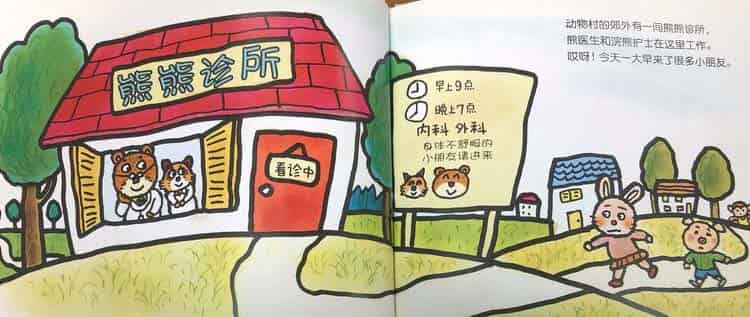 熊熊诊所
看诊中
早上9点
晚上7点
内科 外科
身体不舒服的
小朋友请进来
动物村的郊外有一间熊熊诊所，
熊医生和浣熊护士在这里工作。
哎呀！今天一大早来了很多小朋友。